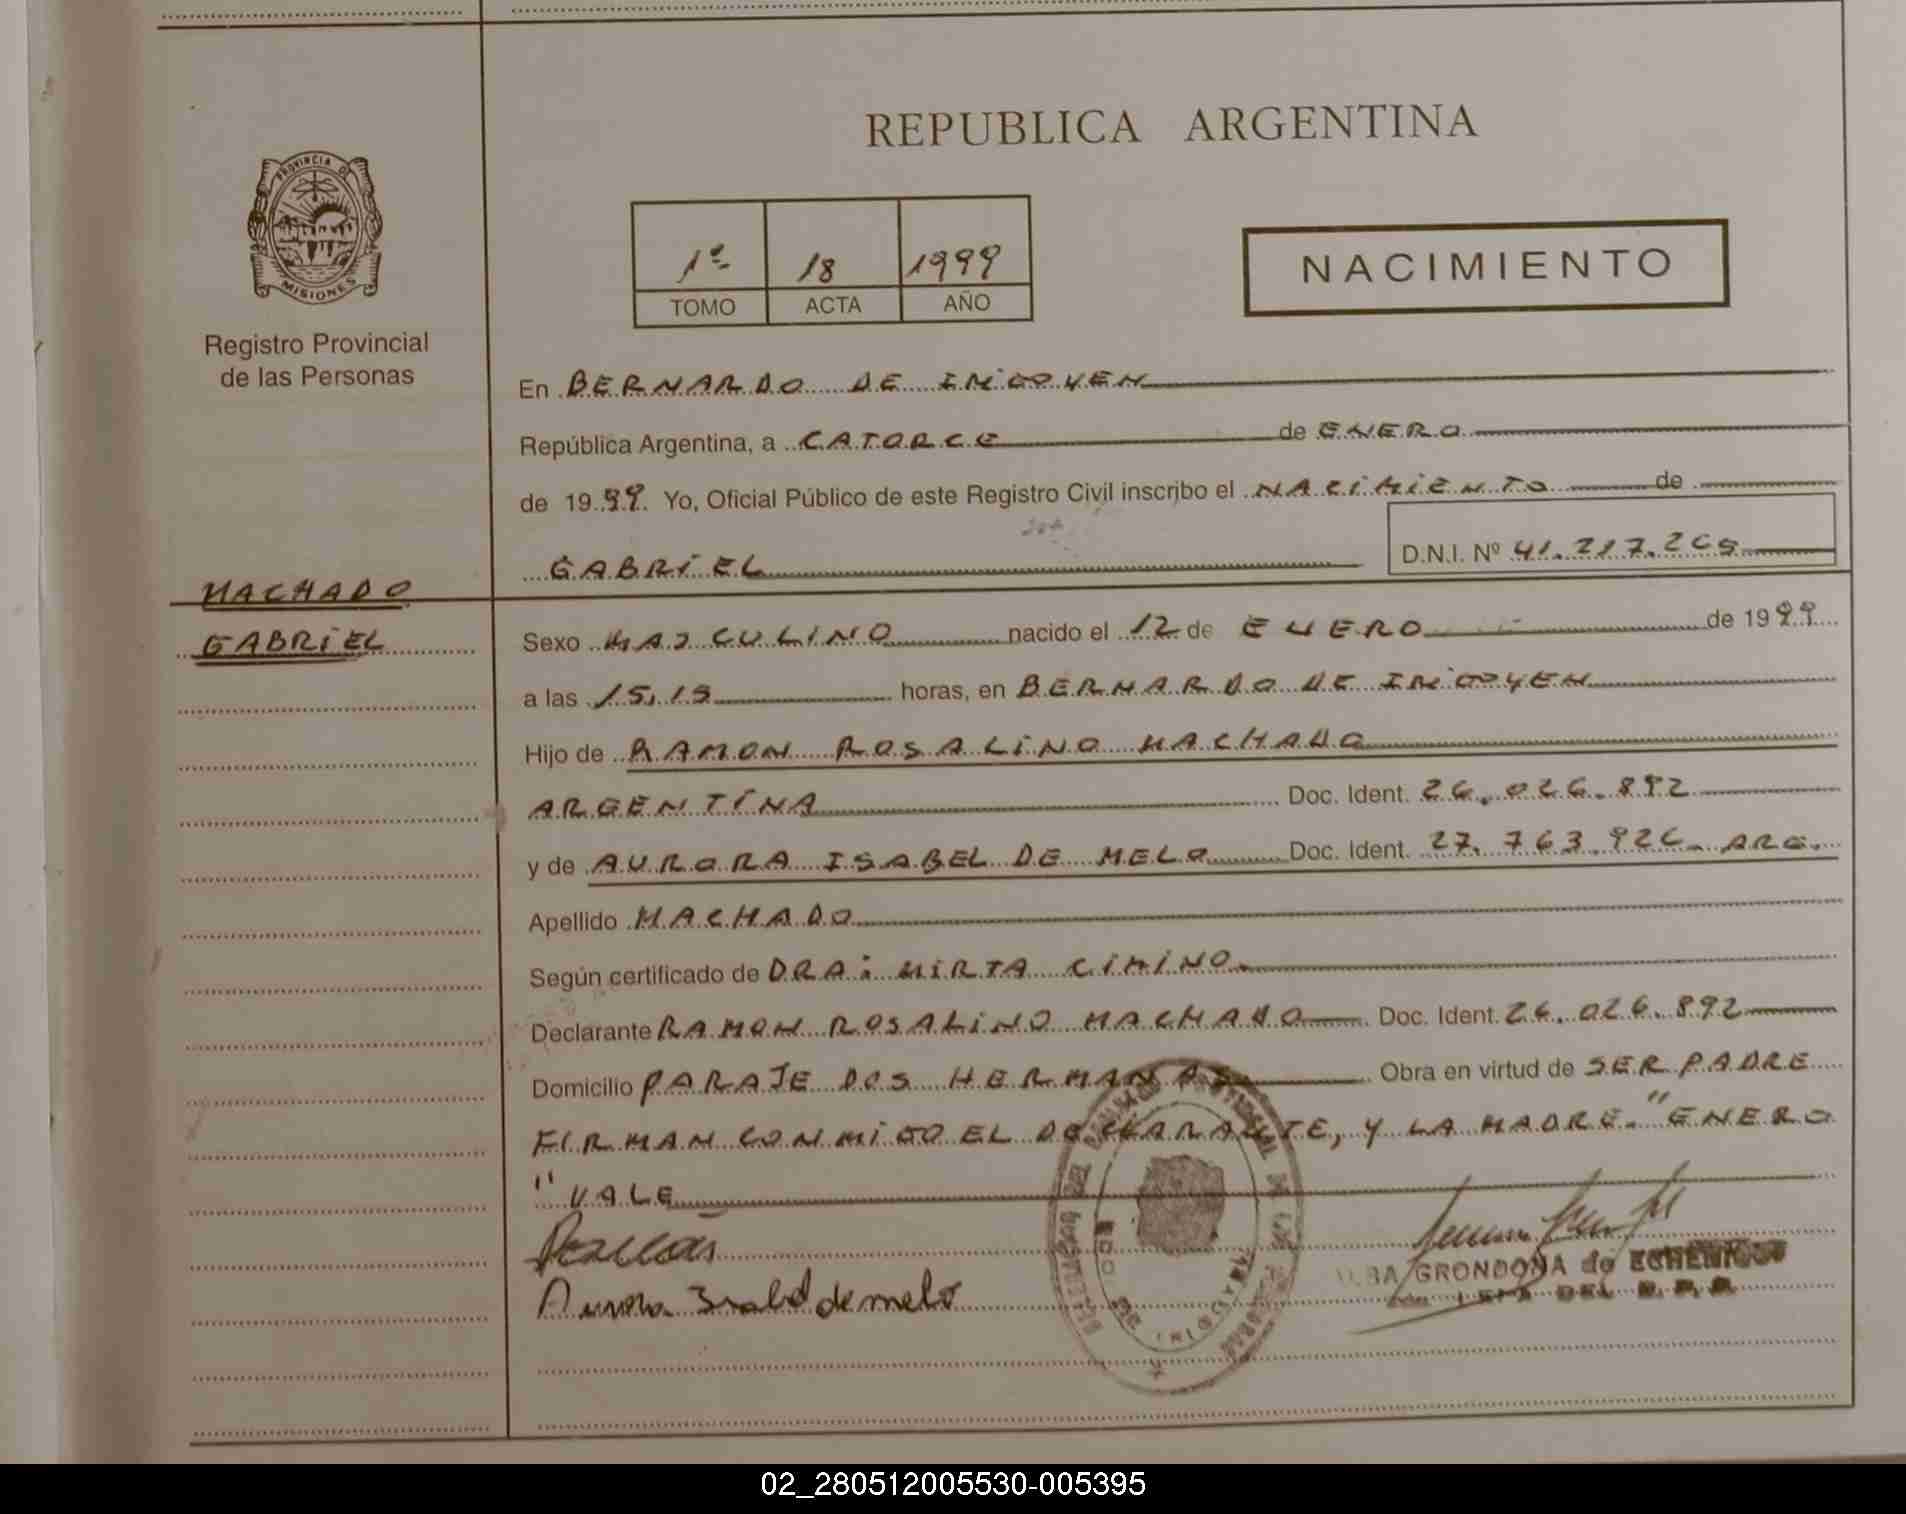 REPUBLICA ARGENTINA
PROVINCIA DE
MISIONES
Registro Provincial
de las Personas
1º 18 1999
TOMO ACTA AÑO
NACIMIENTO
En BERNARDO DE IRIGOYEN
República Argentina, a CATORCE de ENERO
de 1999. Yo, Oficial Público de este Registro Civil inscribo el NACIMIENTO de
GABRIEL D.N.I. Nº 41.217.205
MACHADO
GABRIEL
Sexo MASCULINO nacido el 12 de ENERO de 1999
a las 15,15 horas, en BERNARDO DE IRIGOYEN
Hijo de RAMON ROSALINO MACHADO
ARGENTINA Doc. Ident. 26.026.892
y de AURORA ISABEL DE MELO Doc. Ident. 27.763.926 - ARG.
Apellido MACHADO
Según certificado de DRA: MIRTA CIMINO
Declarante RAMON ROSALINO MACHADO Doc. Ident. 26.026.892
Domicilio PARAJE DOS HERMANAS Obra en virtud de SER PADRE
FIRMAN CONMIGO EL DECLARANTE, Y LA MADRE. "ENERO
" VALE
Aurora Isabel de melo
GRONDONA de ECHENIQUE
02_280512005530-005395